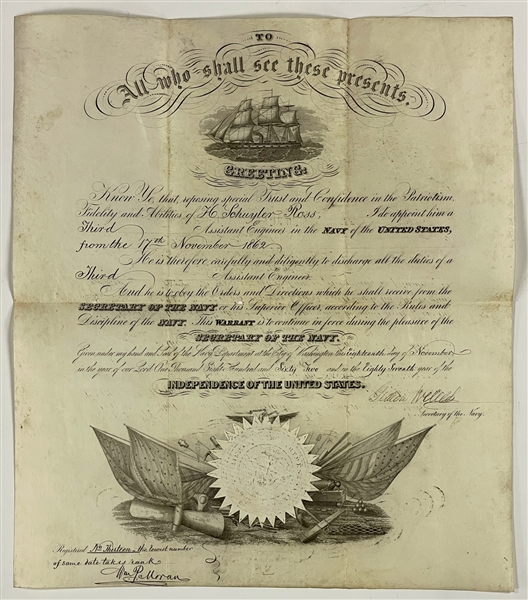 TO
All who shall see these presents,
GREETING:
Know Ye, that, reposing special Trust and Confidence in the Patriotism,
Fidelity and Abilities of H. Schuyler Ross, I do appoint him a
Third Assistant Engineer in the NAVY of the UNITED STATES,
from the 17th November 1862
He is therefore, carefully and diligently to discharge all the duties of a
Third Assistant Engineer
And he is to obey the Orders and Directions which he shall receive from the
SECRETARY OF THE NAVY or his Superior Officer, according to the Rules and
Discipline of the NAVY. This WARRANT is to continue in force during the pleasure of the
SECRETARY OF THE NAVY.
Given under my hand and Seal of the Navy Department at the City of Washington this Eighteenth day of November
in the year of our Lord One Thousand Eight Hundred and Sixty Two and in the Eighty Seventh year of the
INDEPENDENCE OF THE UNITED STATES.
Gideon Welles
Secretary of the Navy.
Registered No. Thirteen - the lowest number
of same date takes rank
Wm P. Moran